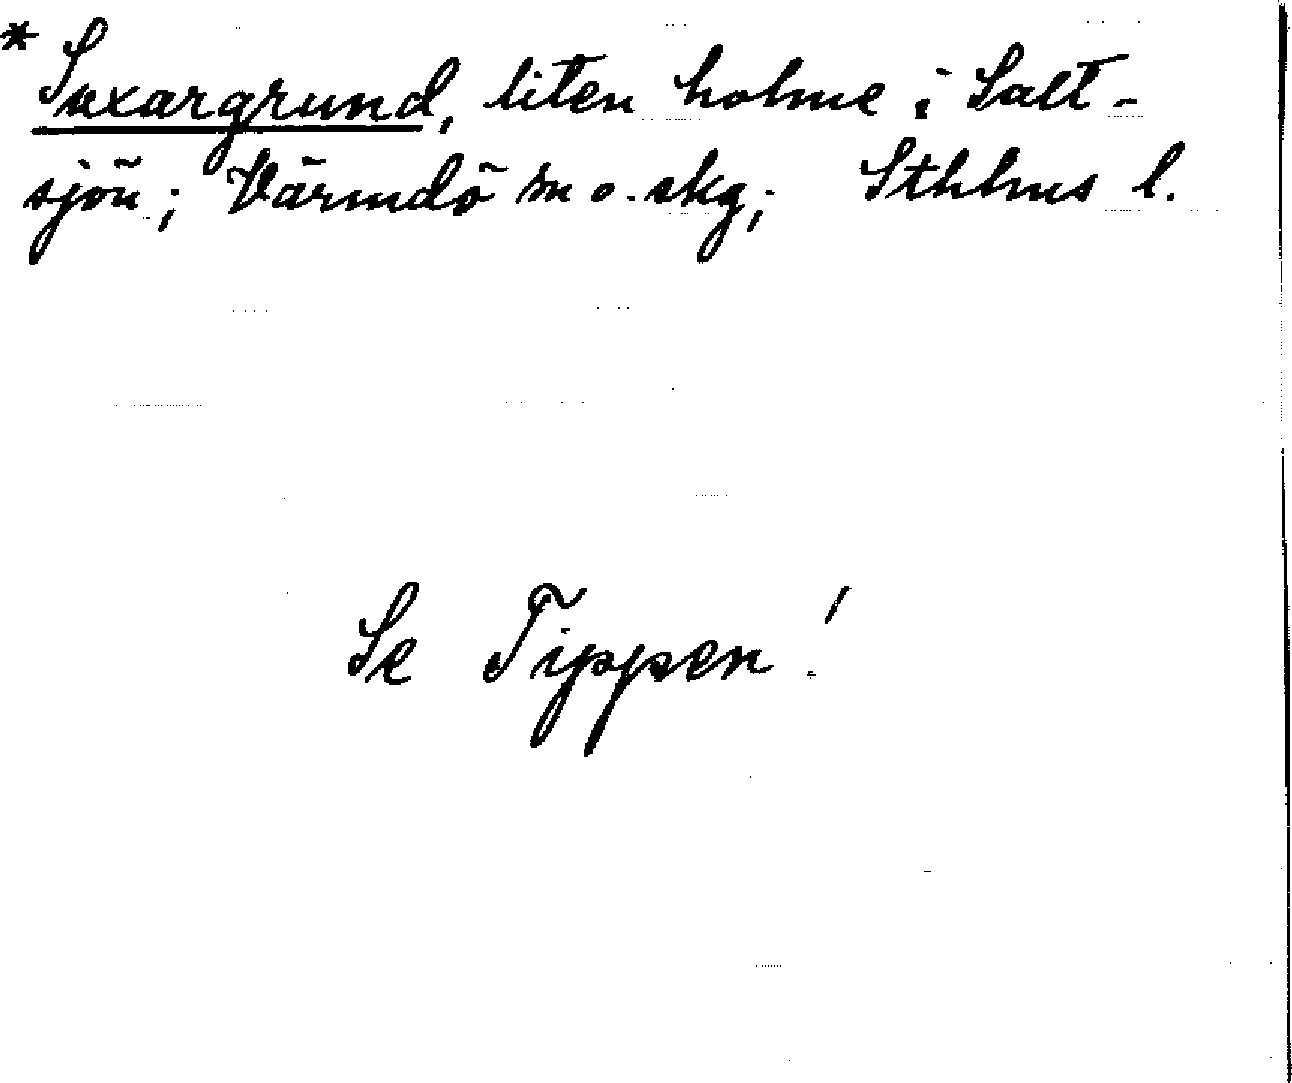 * Saxargrund, liten holme i Salt-
sjön; Värmdö sn o. skg; Sthlms l.
Se Tippen!